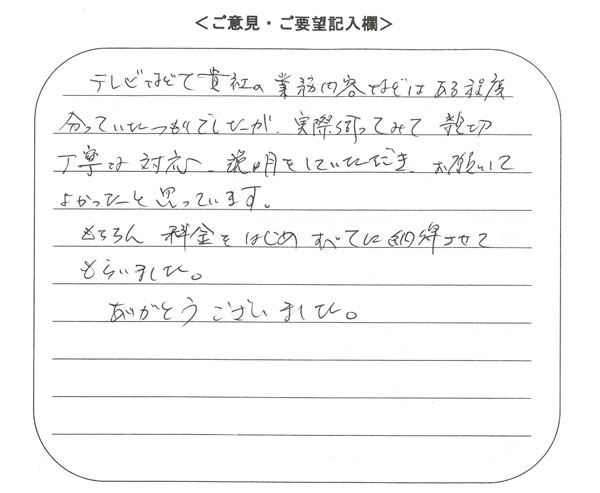 ＜ご意見・ご要望記入欄＞
テレビなどで貴社の業務内容などはある程度
分っていたつもりでしたが、実際伺ってみて親切
丁寧な対応、説明をしていただき、お願いして
よかったと思っています。
もちろん料金をはじめすべてに納得させて
もらいました。
ありがとうございました。